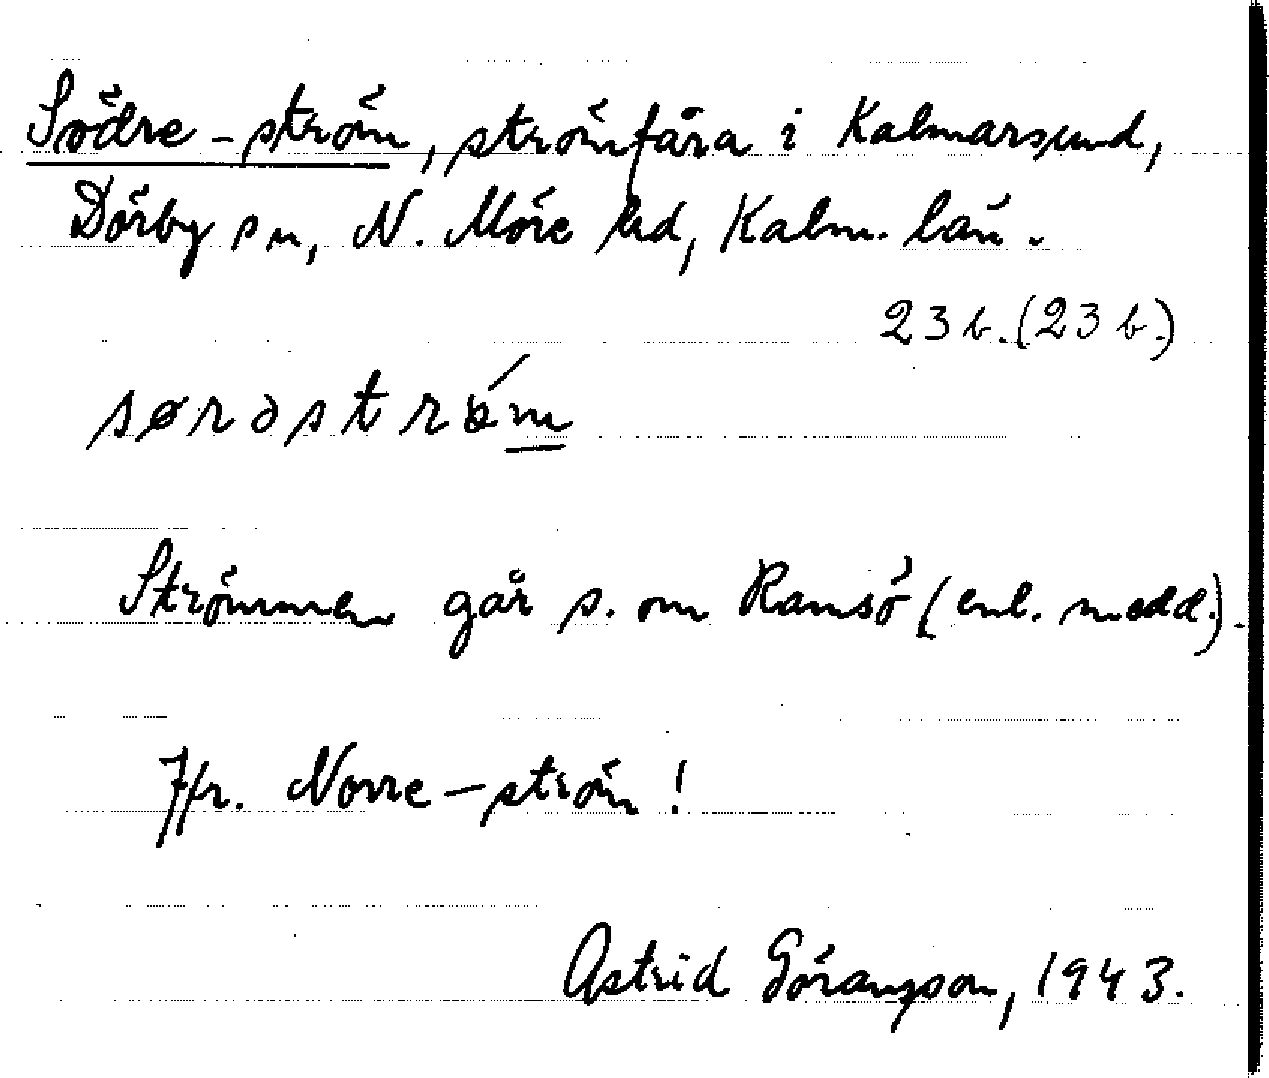 Södre-ström, strömfåra i Kalmarsund,
Dörby sn, N. Möre hd, Kalm. län.
23 b. (23 b.)
Strömmen går s. om Ramsö (enl. medd.).
Jfr. Norre-ström!
Astrid Göransson, 1943.